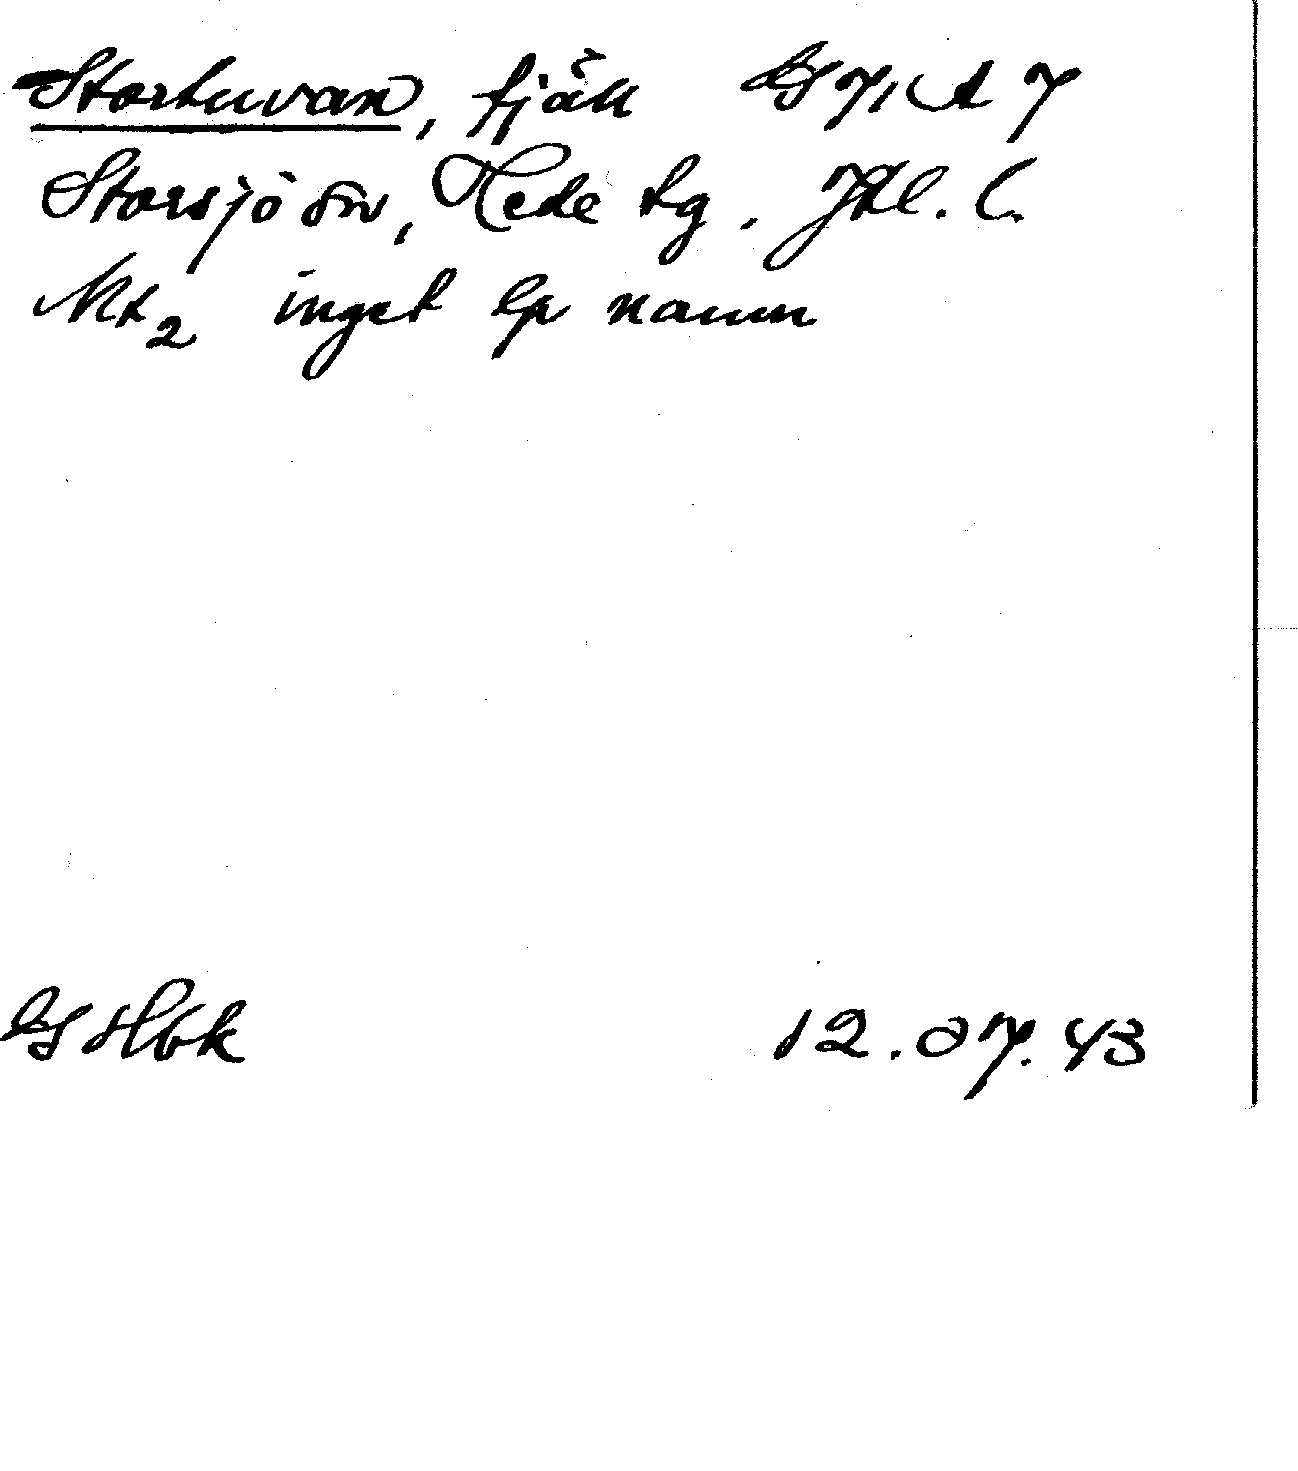 Storhuvan, fjäll
Storsjö sn, Hede tg. Jtl. l.
Mt2 inget lp namn
GHbk 12.07.43